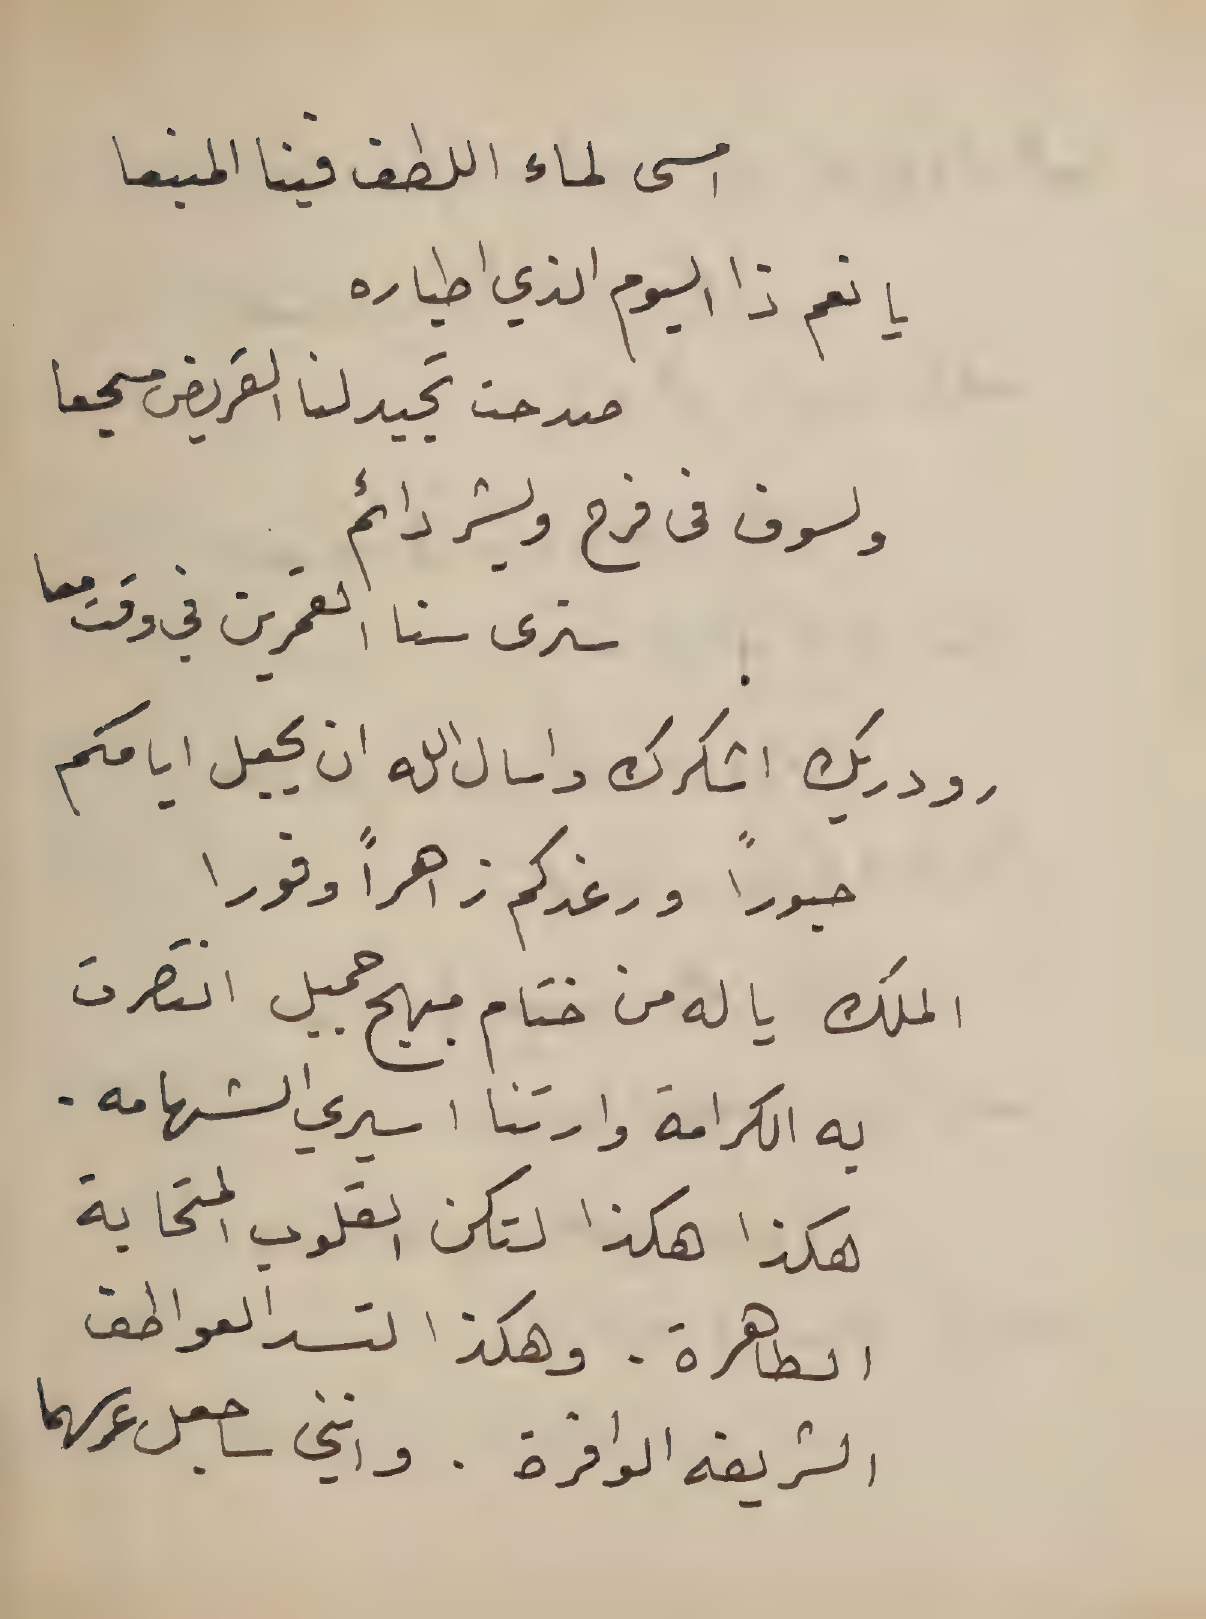 امسى لماء اللطف فينا المنبعا
يا نعم ذا اليوم الذي اطياره
صدحت تجيد لنا القريض مسجعا
ولسوف فى فرح وبشر دائم
سترى سنا القمرين في وقت معا
رودريك اشكرك واسال الله ان يجعل ايامكم
حبوراً ورغدكم زاهراً وقورا
الملك ياله من ختام مبهج جميل انتصرت
به الكرامة وارتنا اسيري الشهامه .
هكذا هكذا لتكن القلوب المتحابة
الطاهرة . وهكذا لتسد العواطف
الشريفه الوافرة . وانني ساجعل عرسهما